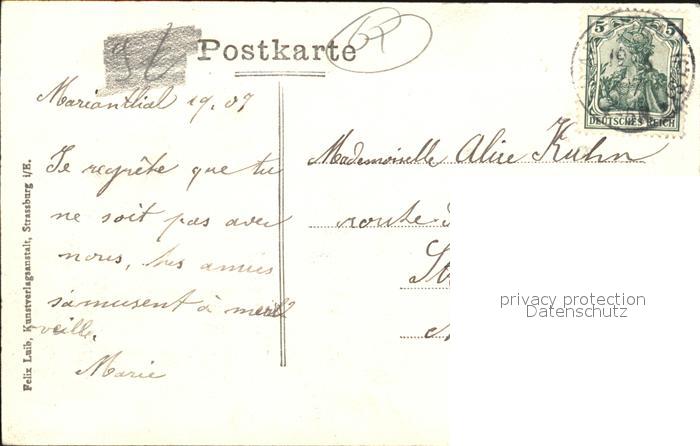 Postkarte
5 5
DEUTSCHES REICH
Marienthal 19. 07
Mademoiselle Alice Kuhn
route
St
Je regrête que tu
ne soit pas avec
nous, tes amies
s'amusent à mer
veille.
Marie
Felix Luib, Kunstverlagsanstalt, Strassburg i/E.
privacy protection
Datenschutz